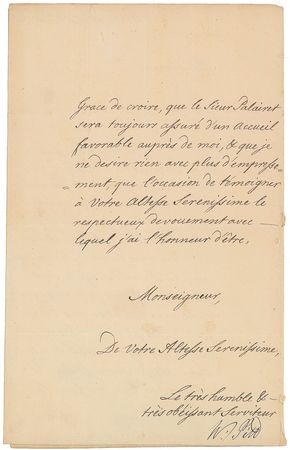 Grace de croire, que le Sieur Palairet
sera toujours assuré d'un Accueil
favorable auprès de moi, & que je
ne desire rien avec plus d'empresse-
=ment, que l'occasion de témoigner
à Votre Altesse Serenissime le
respectueux devouement avec
lequel j'ai l'honneur d'être,
Monseigneur,
De Votre Altesse Serenissime,
Le très humble &
très obéissant Serviteur
W. Pitt